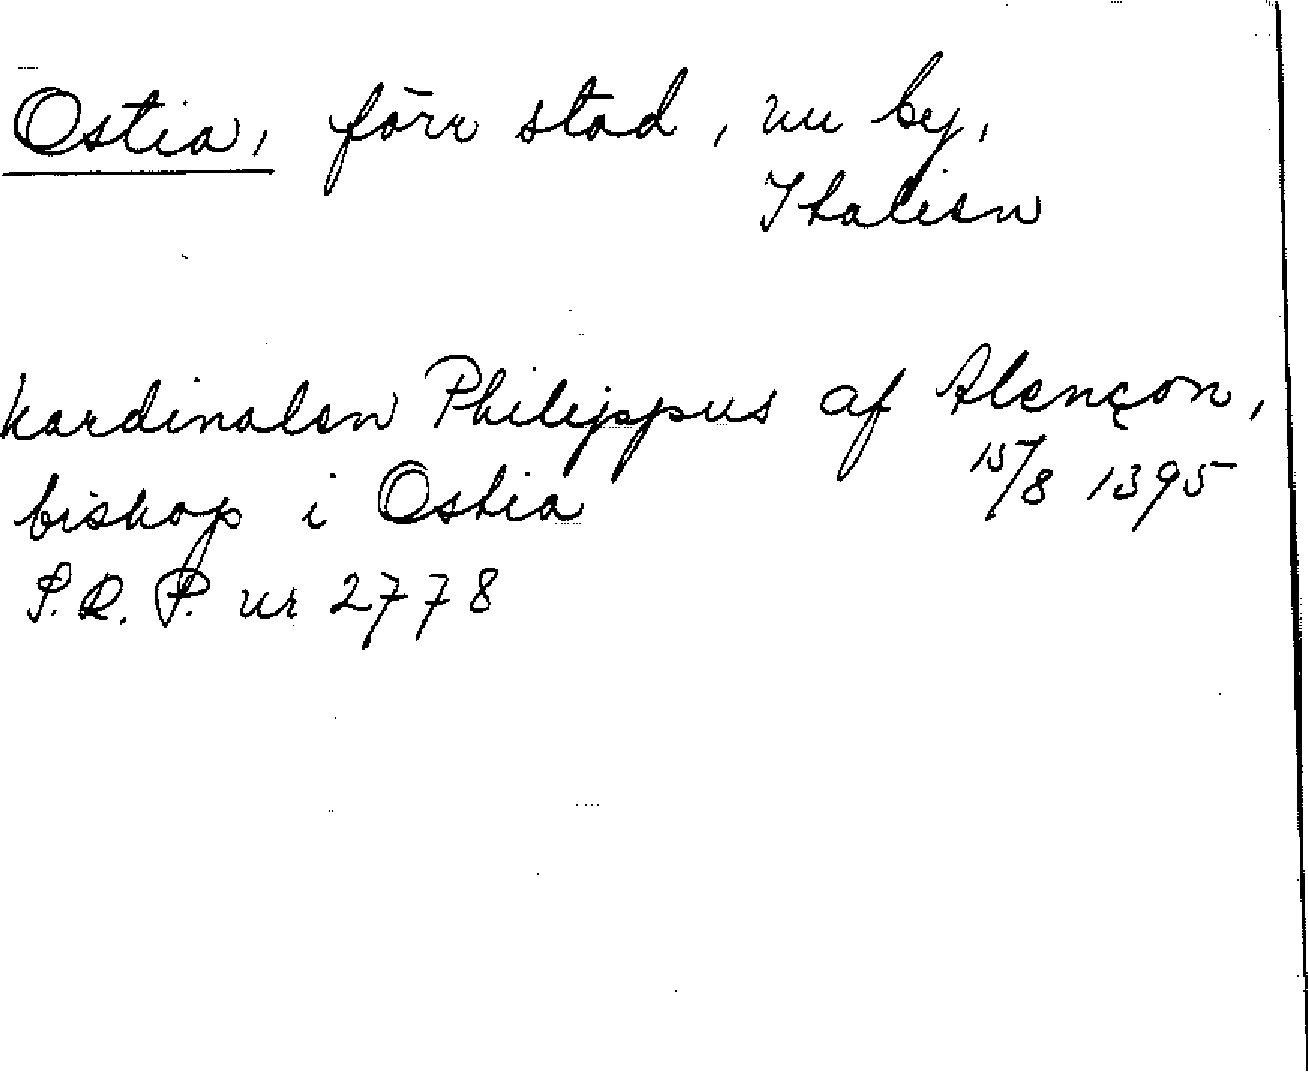 Ostia, förr stad, nu by,
Italien
kardinalen Philippus af Alençon,
biskop i Ostia 15/8 1395
S.R.P. nr 2778